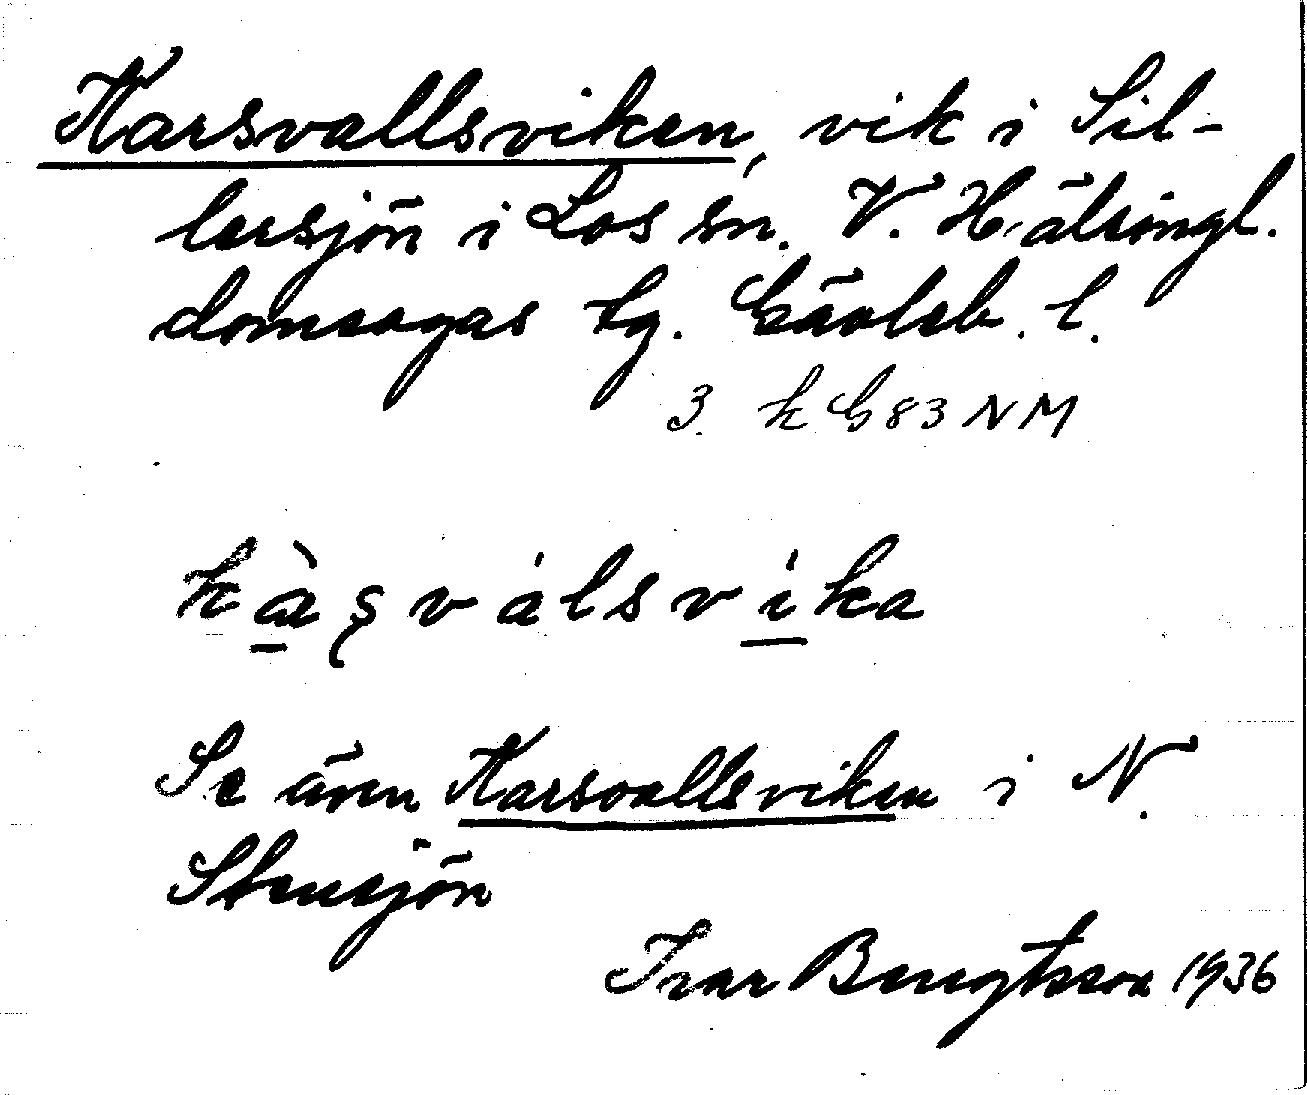 Karsvallsviken, vik i Sil-
lersjön i Los sn. V. Hälsingl.
domsagas tg. Gävleb. l.
3 k G 83 NM
kàṣválsvíka
Se även Karsvallsviken i N.
Stensjön
Ivar Bengtsson 1936